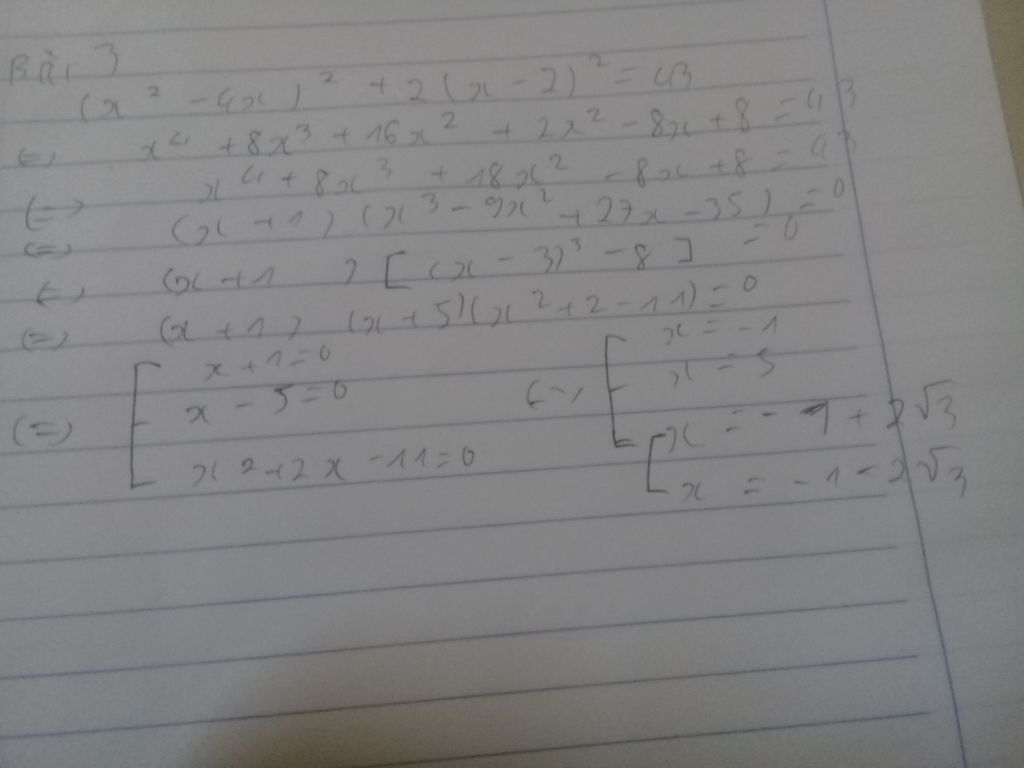 Bài 3
(x² - 4x)² + 2(x - 2)² = 43
(=) x⁴ + 8x³ + 16x² + 2x² - 8x + 8 = 43
(=) x⁴ + 8x³ + 18x² - 8x + 8 = 43
(=) (x + 1) (x³ - 9x² + 27x - 35) = 0
(=) (x + 1) [(x - 3)³ - 8] = 0
(=) (x + 1) (x + 5)(x² + 2 - 11) = 0
(=) [ x + 1 = 0 (=) [ x = -1
x - 5 = 0 x = 5
x² + 2x - 11 = 0 [ x = -1 + 2√3
x = -1 - 2√3